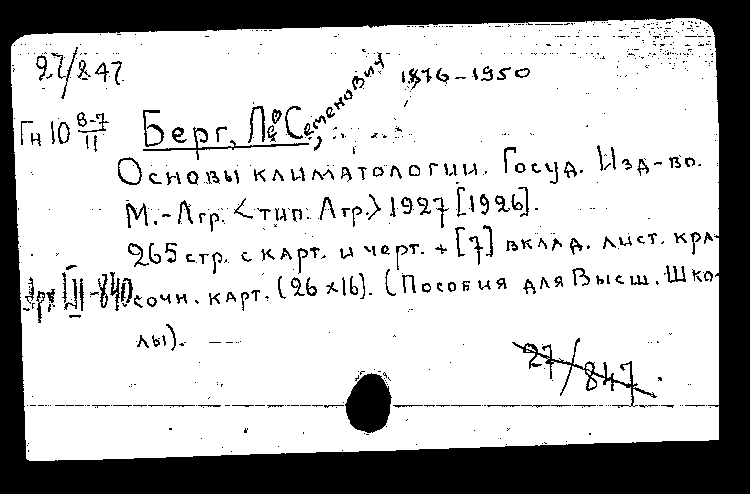 27/847
1876-1950
Гн 10 В-7/II
Берг, Лев Семенович,
Основы климатологии. Госуд. Изд-во.
М.-Лгр. <тип. Лгр.> 1927 [1926].
265 стр. с карт. и черт. + [7] вклад. лист. кра-
Арх III-840
сочн. карт. (26×16). (Пособия для Высш. Шко-
лы). —
27/847